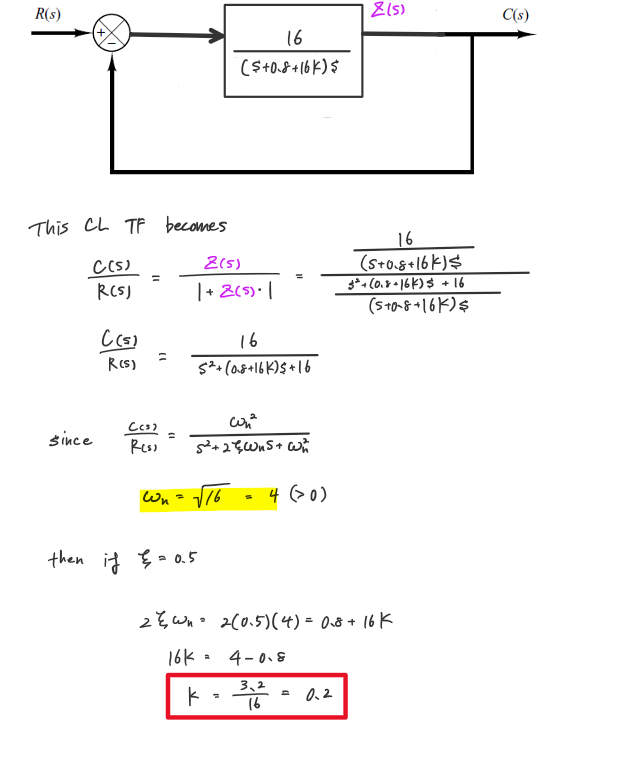 R(s) Z(s) C(s)
+ −
16
(s+0.8+16k)s
This CL TF becomes
C(s)/R(s) = Z(s)/(1 + Z(s)·1) = (16/((s+0.8+16k)s))/((s²+(0.8+16k)s+16)/((s+0.8+16k)s))
C(s)/R(s) = 16/(s²+(0.8+16k)s+16)
since C(s)/R(s) = ωn²/(s²+2ξωns+ωn²)
ωn = √16 = 4 (>0)
then if ξ = 0.5
2ξωn = 2(0.5)(4) = 0.8 + 16k
16k = 4 − 0.8
k = 3.2/16 = 0.2